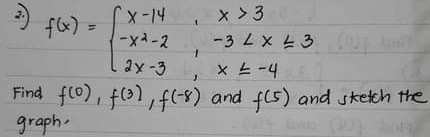 2.) f(x) = { x - 14 , x > 3
-x² - 2 , -3 < x ≤ 3
2x - 3 , x ≤ -4
Find f(0), f(3), f(-8) and f(5) and sketch the
graph.